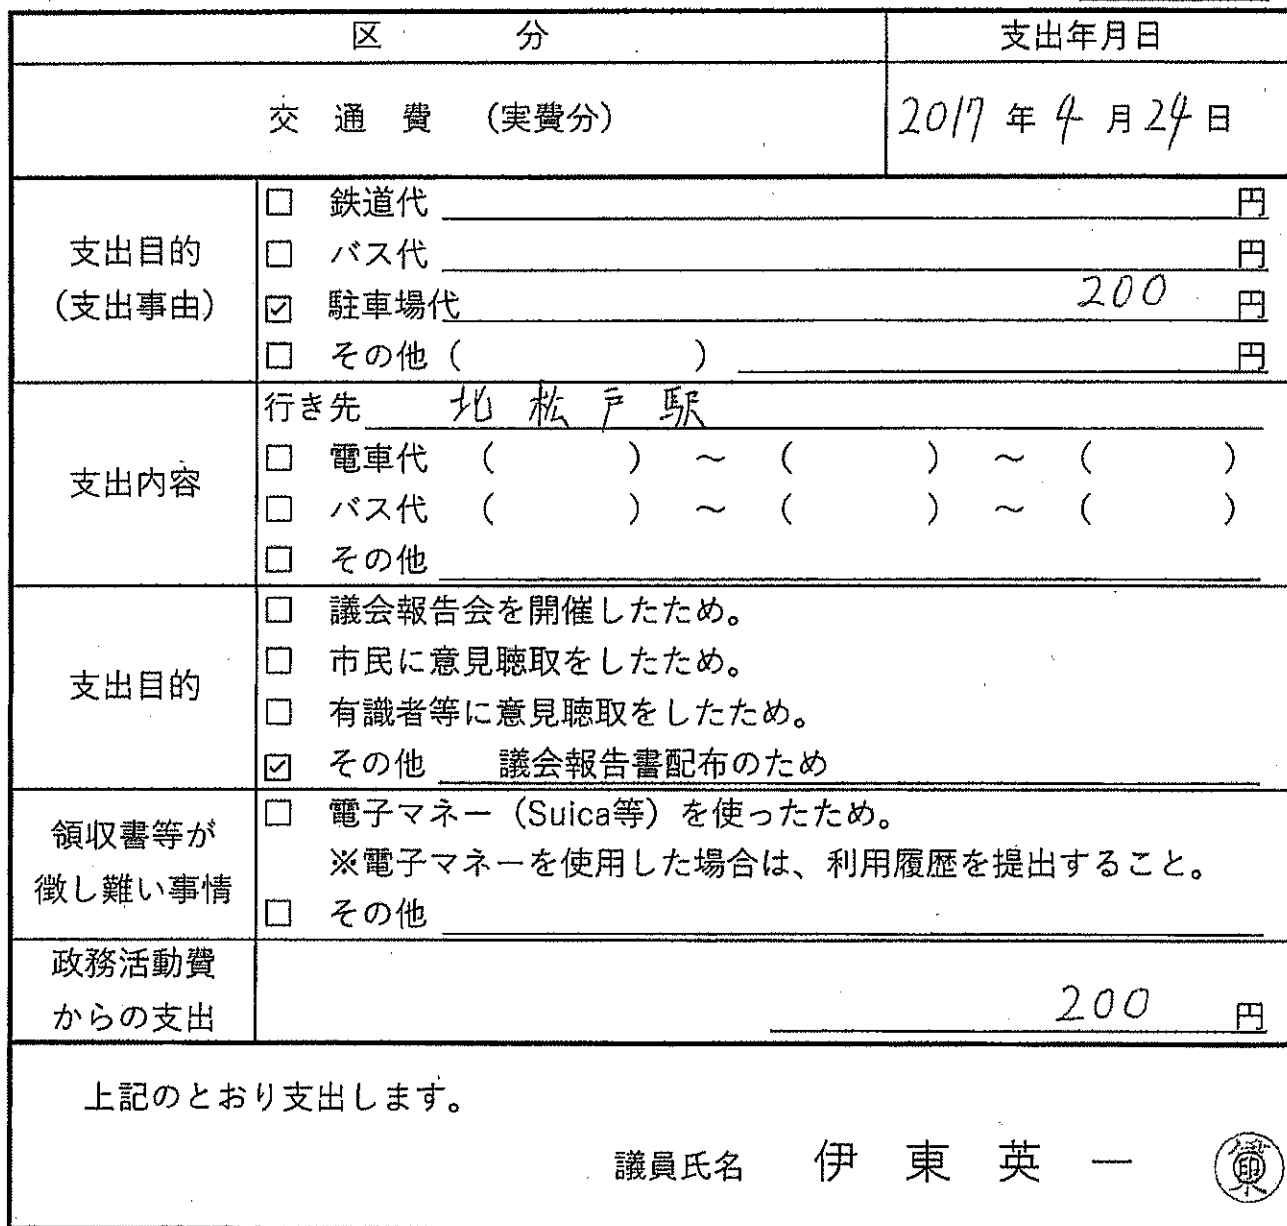 区 分 支出年月日
交 通 費 (実費分) 2017 年 4 月 24 日
支出目的
(支出事由)
□ 鉄道代 円
□ バス代 円
☑ 駐車場代 200 円
□ その他 ( ) 円
支出内容
行き先 北松戸駅
□ 電車代 ( ) ～ ( ) ～ ( )
□ バス代 ( ) ～ ( ) ～ ( )
□ その他
支出目的
□ 議会報告会を開催したため。
□ 市民に意見聴取をしたため。
□ 有識者等に意見聴取をしたため。
☑ その他 議会報告書配布のため
領収書等が
徴し難い事情
□ 電子マネー（Suica等）を使ったため。
※電子マネーを使用した場合は、利用履歴を提出すること。
□ その他
政務活動費
からの支出
200 円
上記のとおり支出します。
議員氏名 伊 東 英 一